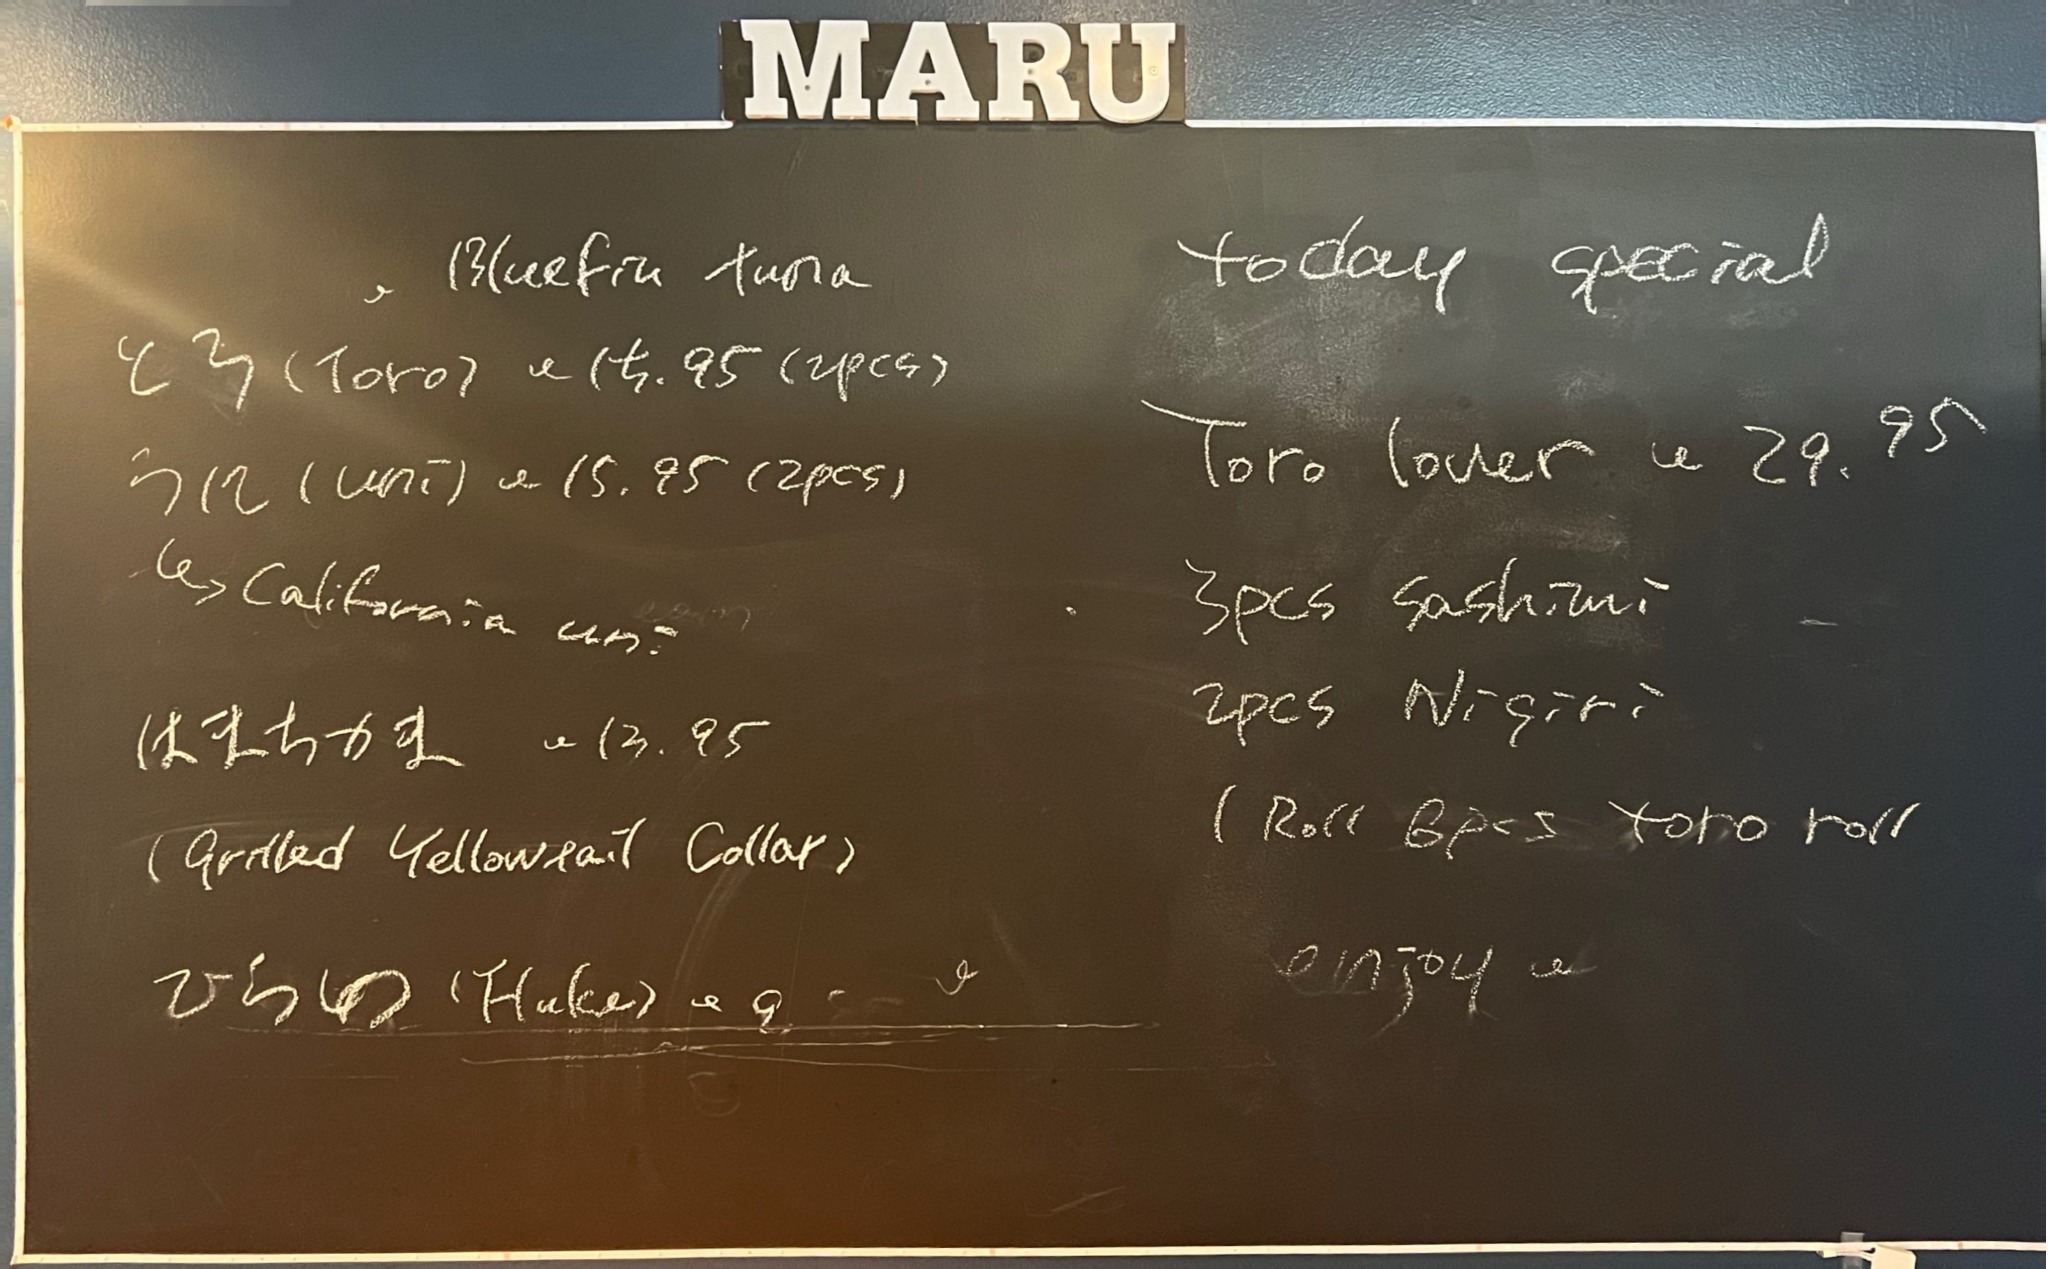 MARU
Bluefin tuna
とろ (Toro) 15.95 (2pcs)
うに (uni) 15.95 (2pcs)
California uni
はまちかま 13.95
(Grilled Yellowtail Collar)
ひらめ (Fluke) 9
today special
Toro lover 29.95
3pcs sashimi
2pcs Nigiri
1 Roll 6pcs toro roll
enjoy